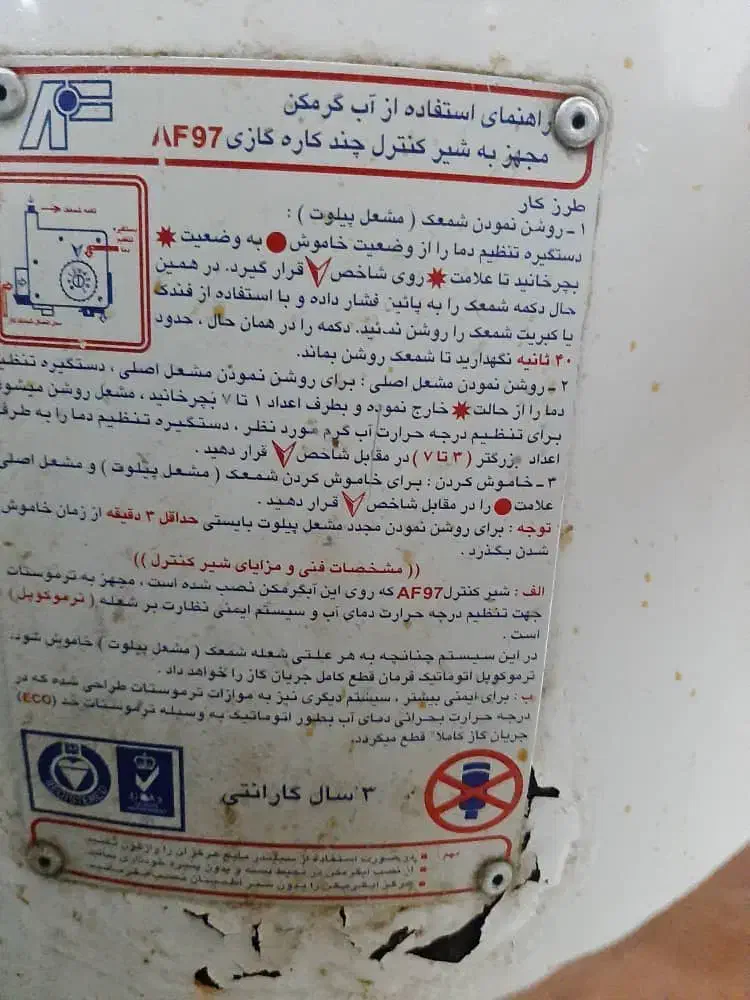 AF
راهنمای استفاده از آب گرمکن
مجهز به شیر کنترل چند کاره گازی AF97
طرز کار
۱ - روشن نمودن شمعک ( مشعل پیلوت ) :
دستگیره تنظیم دما را از وضعیت خاموش به وضعیت
بچرخانید تا علامت روی شاخص قرار گیرد. در همین
حال دکمه شمعک را به پائین فشار داده و با استفاده از فندک
یا کبریت شمعک را روشن نمائید. دکمه را در همان حال ، حدود
۴۰ ثانیه نگهدارید تا شمعک روشن بماند.
دستگیره
تنظیم
دما
۲ - روشن نمودن مشعل اصلی : برای روشن نمودن مشعل اصلی ، دستگیره تنظیم
دما را از حالت خارج نموده و بطرف اعداد ۱ تا ۷ بچرخانید ، مشعل روشن میشود
برای تنظیم درجه حرارت آب گرم مورد نظر ، دستگیره تنظیم دما را به طرف
اعداد بزرگتر ( ۳ تا ۷ ) در مقابل شاخص قرار دهید .
۳ - خاموش کردن : برای خاموش کردن شمعک ( مشعل پیلوت ) و مشعل اصلی
علامت را در مقابل شاخص قرار دهید .
توجه : برای روشن نمودن مجدد مشعل پیلوت بایستی حداقل ۳ دقیقه از زمان خاموش
شدن بگذرد .
(( مشخصات فنی و مزایای شیر کنترل ))
الف : شیر کنترل AF97 که روی این آبگرمکن نصب شده است ، مجهز به ترموستات
جهت تنظیم درجه حرارت دمای آب و سیستم ایمنی نظارت بر شعله ( ترموکوپل )
است .
در این سیستم چنانچه به هر علتی شعله شمعک ( مشعل پیلوت ) خاموش شود،
ترموکوپل اتوماتیک فرمان قطع کامل جریان گاز را خواهد داد .
ب : برای ایمنی بیشتر ، سیستم دیگری نیز به موازات ترموستات طراحی شده که در
درجه حرارت بحرانی دمای آب بطور اتوماتیک به وسیله ترموستات حد (ECO)
جریان گاز کاملاً قطع میگردد.
۳ سال گارانتی
مهم : در صورت استفاده از سیلندر مایع هرگز آن را وارون نکنید
از نصب آبگرمکن در محیط بسته و بدون پنجره خودداری نمائید
هرگز آبگرمکن را بدون شیر اطمینان نصب نفرمائید